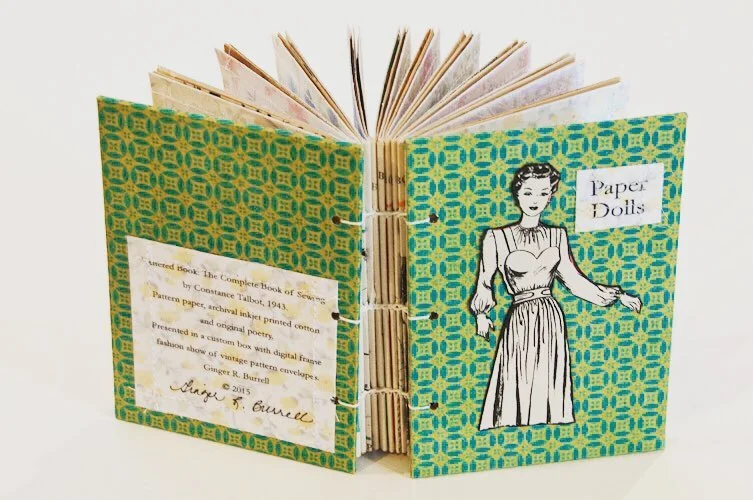 Altered Book: The Complete Book of Sewing
by Constance Talbot, 1943
Pattern paper, archival inkjet printed cotton
and original poetry.
Presented in a custom box with digital frame
fashion show of vintage pattern envelopes.
Ginger R. Burrell
© 2015
Ginger R. Burrell
Paper
Dolls